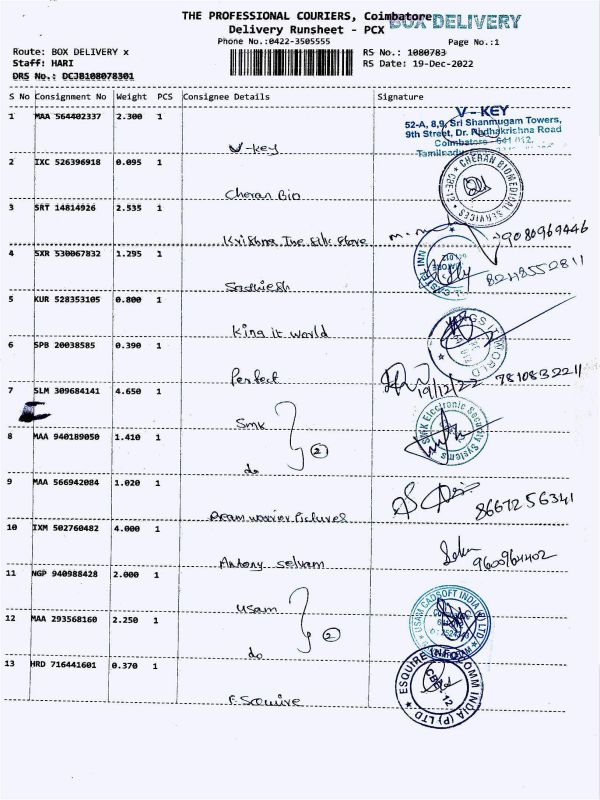 THE PROFESSIONAL COURIERS, Coimbatore
BOX DELIVERY
Delivery Runsheet - PCX
Phone No.:0422-3505555
Page No.:1
Route: BOX DELIVERY x
RS No.: 1080783
Staff: HARI
RS Date: 19-Dec-2022
DRS No.: DCJB108078301
S No Consignment No Weight PCS Consignee Details Signature
1 MAA 564402337 2.300 1
V-key
V - KEY
52-A, 8,9, Sri Shanmugam Towers,
9th Street, Dr. Radhakrishna Road
Coimbatore - 641 012.
2 IXC 526396918 0.095 1
Cheran Bio
CHERAN BIOMEDICAL SERVICES
CBE-12
3 SRT 14814926 2.535 1
Krishna The Silk Store
9080969446
4 SXR 530067832 1.295 1
5 KUR 528353105 0.800 1
King it world
KINGS IT WORLD
6 SPB 20038585 0.390 1
Perfect
19/12/22 7810832211
7 SLM 309684141 4.650 1
SMK
SMK Electronic Security Systems
8 MAA 940189050 1.410 1
do
2
9 MAA 566942084 1.020 1
Dream warrior Pictures
8667256341
10 IXM 502760482 4.000 1
Antony Selvam
9600964402
11 NGP 940988428 2.000 1
USam
USAM CADSOFT INDIA (P) LTD
12 MAA 293568160 2.250 1
do
2
13 HRD 716441601 0.370 1
Esquire
ESQUIRE INFOCOMM INDIA (P) LTD